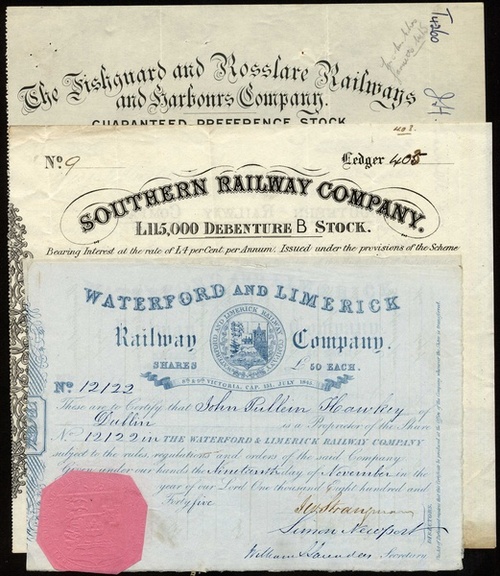 Tusko
The Fishguard and Rosslare Railways
and Harbours Company.
GUARANTEED PREFERENCE STOCK
No. 9
Ledger 405
SOUTHERN RAILWAY COMPANY.
£115,000 DEBENTURE B STOCK.
Bearing Interest at the rate of £4 per Cent. per Annum. Issued under the provisions of the Scheme
WATERFORD AND LIMERICK
Railway Company.
SHARES £50 EACH.
8th & 9th VICTORIA, CAP. 131, JULY 1845.
No. 12122
These are to Certify that John Pullein Hawkey of
Dublin is a Proprietor of the Share
No. 12122 in THE WATERFORD & LIMERICK RAILWAY COMPANY
subject to the rules, regulations and orders of the said Company.
Given under our hands the Nineteenth day of November in the
year of our Lord One thousand Eight hundred and
Forty five
Strangman
Simon Newport
DIRECTORS.
William Saunders Secretary